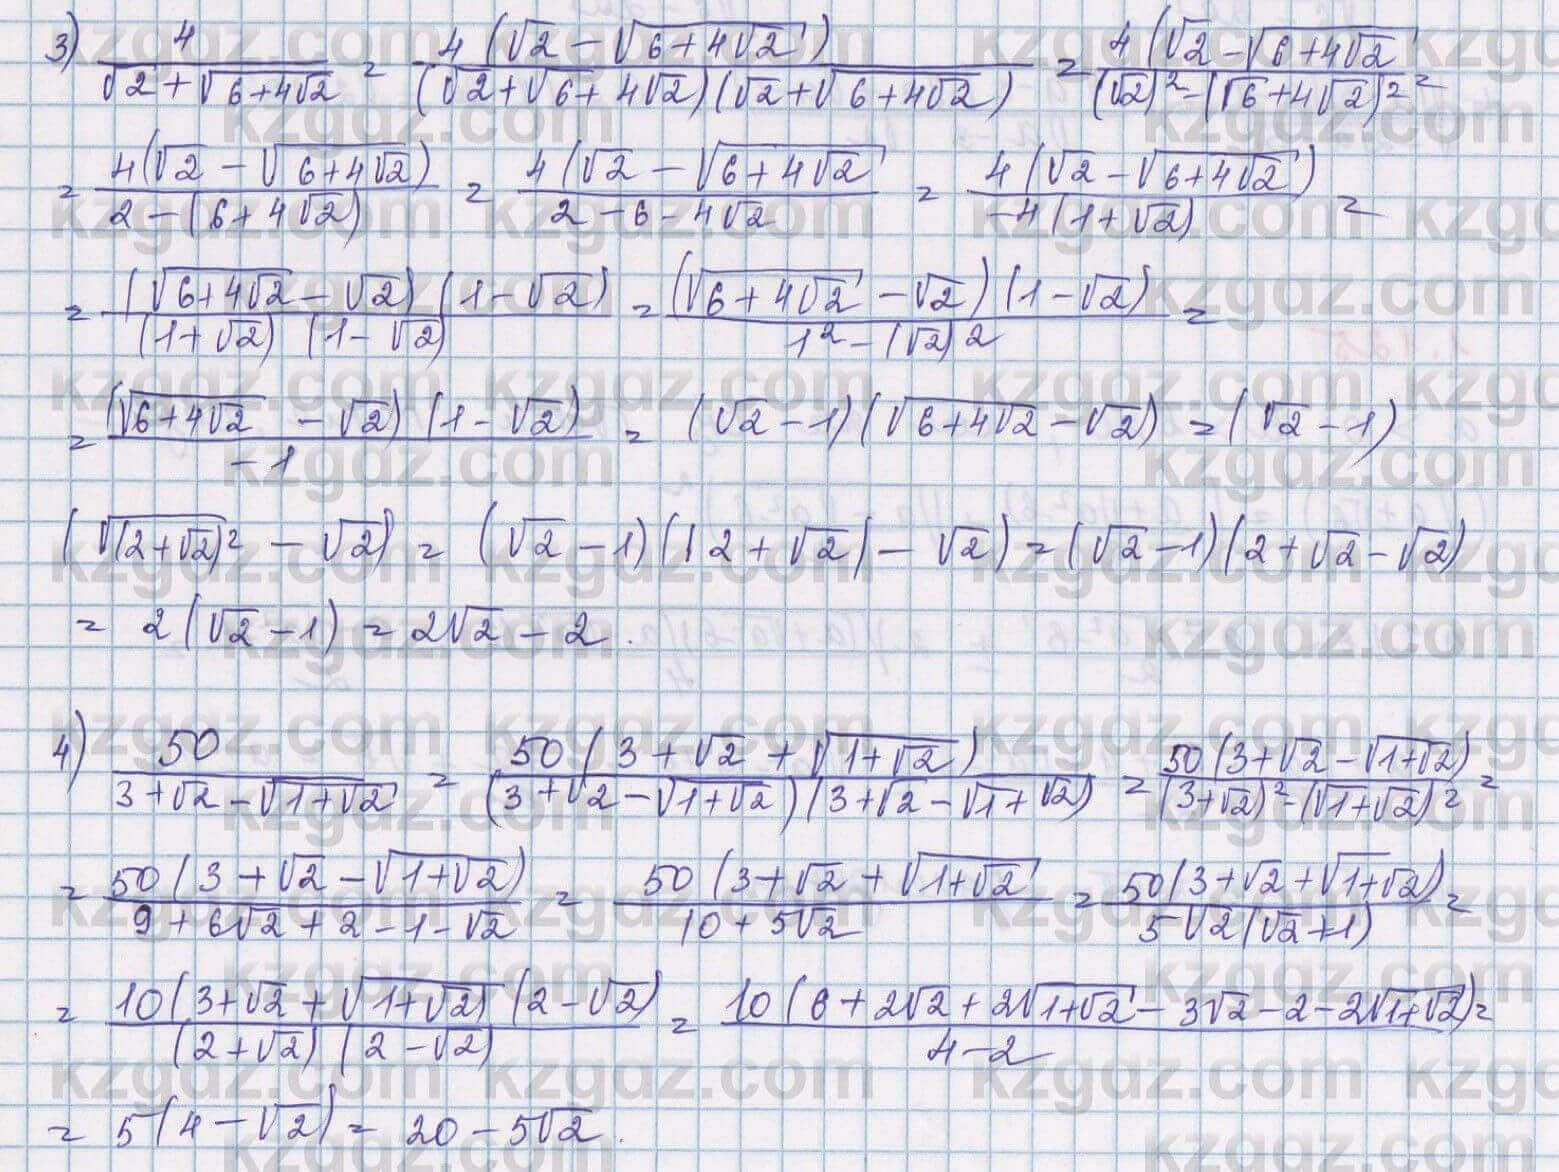 3) 4/(√2+√(6+4√2)) = 4(√2−√(6+4√2))/((√2+√6+4√2)(√2+√(6+4√2))) = 4(√2−√(6+4√2)/((√2)²−(√6+4√2)²) =
= 4(√2−√(6+4√2))/(2−(6+4√2)) = 4(√2−√(6+4√2)/(2−6−4√2) = 4(√2−√(6+4√2))/(−4(1+√2)) =
= (√(6+4√2)−√2)(1−√2)/((1+√2)(1−√2)) = (√(6+4√2)−√2)(1−√2)/(1²−(√2)²) =
= (√(6+4√2)−√2)(1−√2)/(−1) = (√2−1)(√(6+4√2)−√2) = (√2−1)
(√((2+√2)²)−√2) = (√2−1)(|2+√2|−√2) = (√2−1)(2+√2−√2)
= 2(√2−1) = 2√2−2.
4) 50/(3+√2−√(1+√2)) = 50(3+√2+√(1+√2))/((3+√2−√(1+√2))(3+√2−√1+√2)) = 50(3+√2−√(1+√2))/((3+√2)²−(√(1+√2))²) =
= 50(3+√2−√(1+√2))/(9+6√2+2−1−√2) = 50(3+√2+√(1+√2)/(10+5√2) = 50(3+√2+√(1+√2))/(5√2(√2+1)) =
= 10(3+√2+√(1+√2))(2−√2)/((2+√2)(2−√2)) = 10(6+2√2+2√(1+√2)−3√2−2−2√(1+√2))/(4−2) =
= 5(4−√2) = 20−5√2.
kzgdz.com